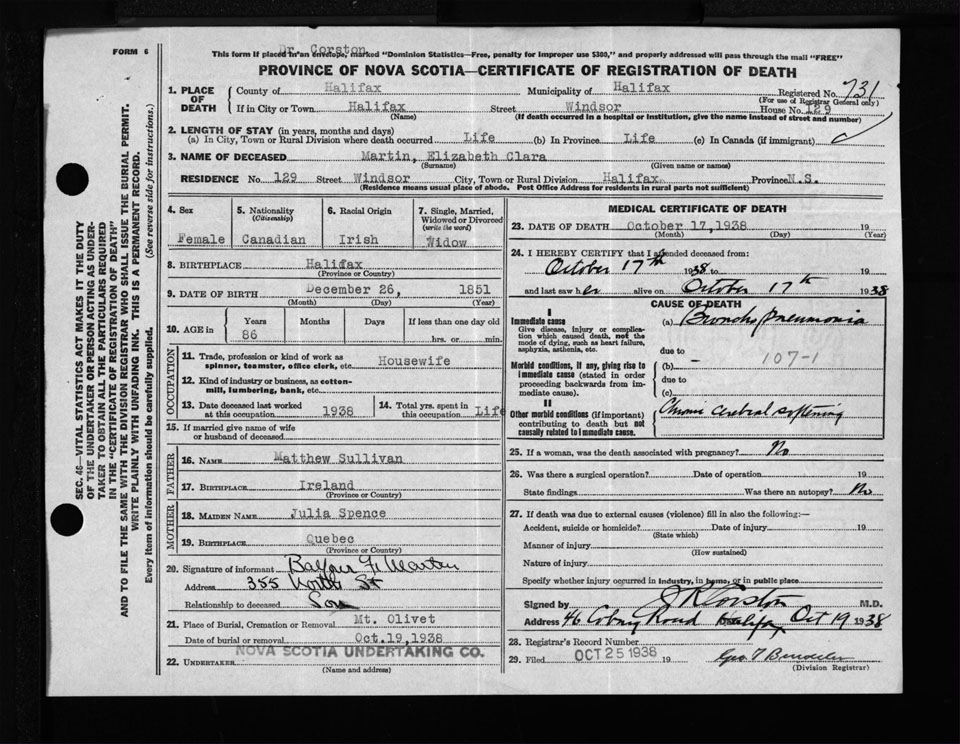 FORM 6
Dr. Corston
This form if placed in an envelope, marked "Dominion Statistics—Free, penalty for improper use $300," and properly addressed will pass through the mail "FREE"
PROVINCE OF NOVA SCOTIA—CERTIFICATE OF REGISTRATION OF DEATH
1. PLACE OF DEATH
County of Halifax Municipality of Halifax Registered No. 731
(For use of Registrar General only)
If in City or Town Halifax Street Windsor House No. 129
(Name) (If death occurred in a hospital or institution, give the name instead of street and number)
2. LENGTH OF STAY (in years, months and days)
(a) In City, Town or Rural Division where death occurred Life (b) In Province Life (c) In Canada (if immigrant)
3. NAME OF DECEASED Martin, Elizabeth Clara
(Surname) (Given name or names)
RESIDENCE No. 129 Street Windsor City, Town or Rural Division Halifax Province N.S.
(Residence means usual place of abode. Post Office Address for residents in rural parts not sufficient)
SEC. 46—VITAL STATISTICS ACT MAKES IT THE DUTY
OF THE UNDERTAKER OR PERSON ACTING AS UNDER-
TAKER TO OBTAIN ALL THE PARTICULARS REQUIRED
IN THE "CERTIFICATE OF REGISTRATION OF DEATH"
AND TO FILE THE SAME WITH THE DIVISION REGISTRAR WHO SHALL ISSUE THE BURIAL PERMIT.
WRITE PLAINLY WITH UNFADING INK. THIS IS A PERMANENT RECORD.
Every item of information should be carefully supplied. (See reverse side for instructions.)
4. Sex
Female
5. Nationality
(Citizenship)
Canadian
6. Racial Origin
Irish
7. Single, Married,
Widowed or Divorced
(write the word)
Widow
8. BIRTHPLACE Halifax
(Province or Country)
9. DATE OF BIRTH December 26, 1851
(Month) (Day) (Year)
10. AGE in
Years Months Days If less than one day old
86 hrs. or min.
OCCUPATION
11. Trade, profession or kind of work as
spinner, teamster, office clerk, etc. Housewife
12. Kind of industry or business, as cotton-
mill, lumbering, bank, etc.
13. Date deceased last worked
at this occupation 1938
14. Total yrs. spent in
this occupation Life
15. If married give name of wife
or husband of deceased
FATHER
16. NAME Matthew Sullivan
17. BIRTHPLACE Ireland
(Province or Country)
MOTHER
18. MAIDEN NAME Julia Spence
19. BIRTHPLACE Quebec
(Province or Country)
20. Signature of informant Martin
Address 355 North St
Relationship to deceased Son
21. Place of Burial, Cremation or Removal Mt. Olivet
Date of burial or removal Oct.19,1938
22. UNDERTAKER NOVA SCOTIA UNDERTAKING CO.
(Name and address)
MEDICAL CERTIFICATE OF DEATH
23. DATE OF DEATH October 17,1938 19
(Month) (Day) (Year)
24. I HEREBY CERTIFY that I attended deceased from:
October 17th 1938 to 19
and last saw her alive on October 17th 1938
CAUSE OF DEATH
I
Immediate cause
Give disease, injury or complica-
tion which caused death, not the
mode of dying, such as heart failure,
asphyxia, asthenia, etc.
(a) Broncho pneumonia
due to
Morbid conditions, if any, giving rise to
immediate cause (stated in order
proceeding backwards from im-
mediate cause).
(b) — 107-1
due to
(c)
II
Other morbid conditions (if important)
contributing to death but not
causally related to immediate cause.
Chronic cerebral softening
25. If a woman, was the death associated with pregnancy? No
26. Was there a surgical operation? Date of operation 19
State findings Was there an autopsy? No
27. If death was due to external causes (violence) fill in also the following:—
Accident, suicide or homicide? Date of injury 19
(State which)
Manner of injury
(How sustained)
Nature of injury
Specify whether injury occurred in industry, in home, or in public place
Signed by J R Corston M.D.
Address 46 Coburg Road Halifax Oct 19 1938
28. Registrar's Record Number
29. Filed OCT 25 1938 19
(Division Registrar)